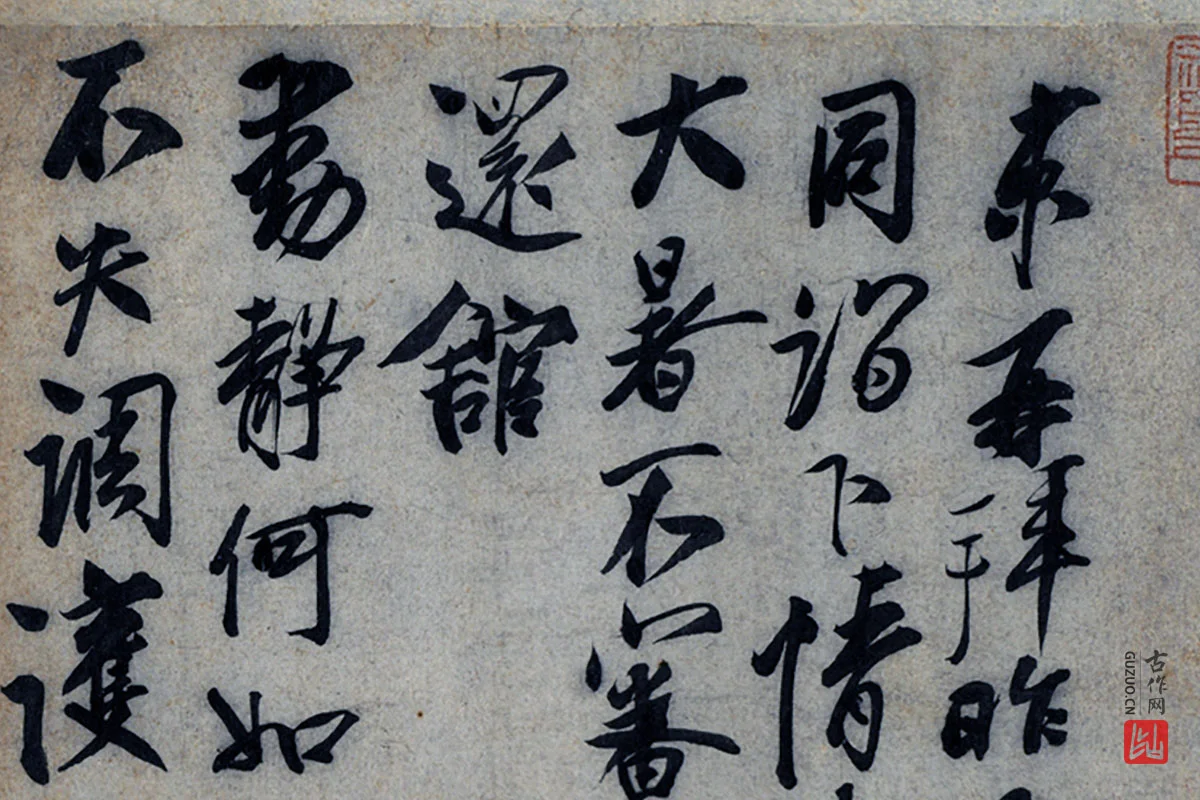 再拜昨
同詣下情
大暑不審
還館
動靜何如
不失調護
古作网
GUZUO.CN